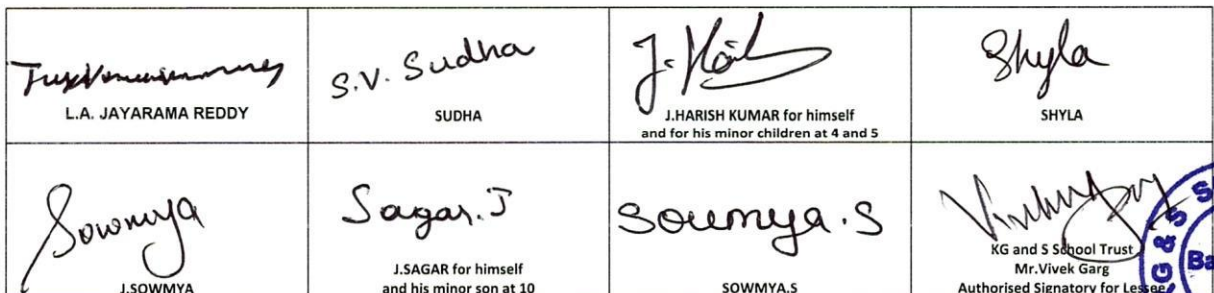 L.A. JAYARAMA REDDY
S.V. Sudha
SUDHA
J. Harish
J.HARISH KUMAR for himself
and for his minor children at 4 and 5
Shyla
SHYLA
Sowmya
J.SOWMYA
Sagar. J
J.SAGAR for himself
and his minor son at 10
Soumya.S
SOWMYA.S
KG and S School Trust
Mr.Vivek Garg
Authorised Signatory for Lessee
KG & S S
Ba